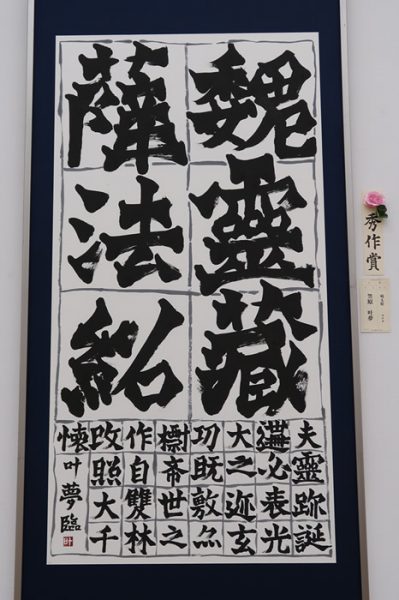 魏靈藏
薛法紹
夫靈跡誕
遘必表光
大之迹玄
功既敷亦
標希世之
作自雙林
改照大千
懷
叶夢臨
秀作賞
笠原 叶夢